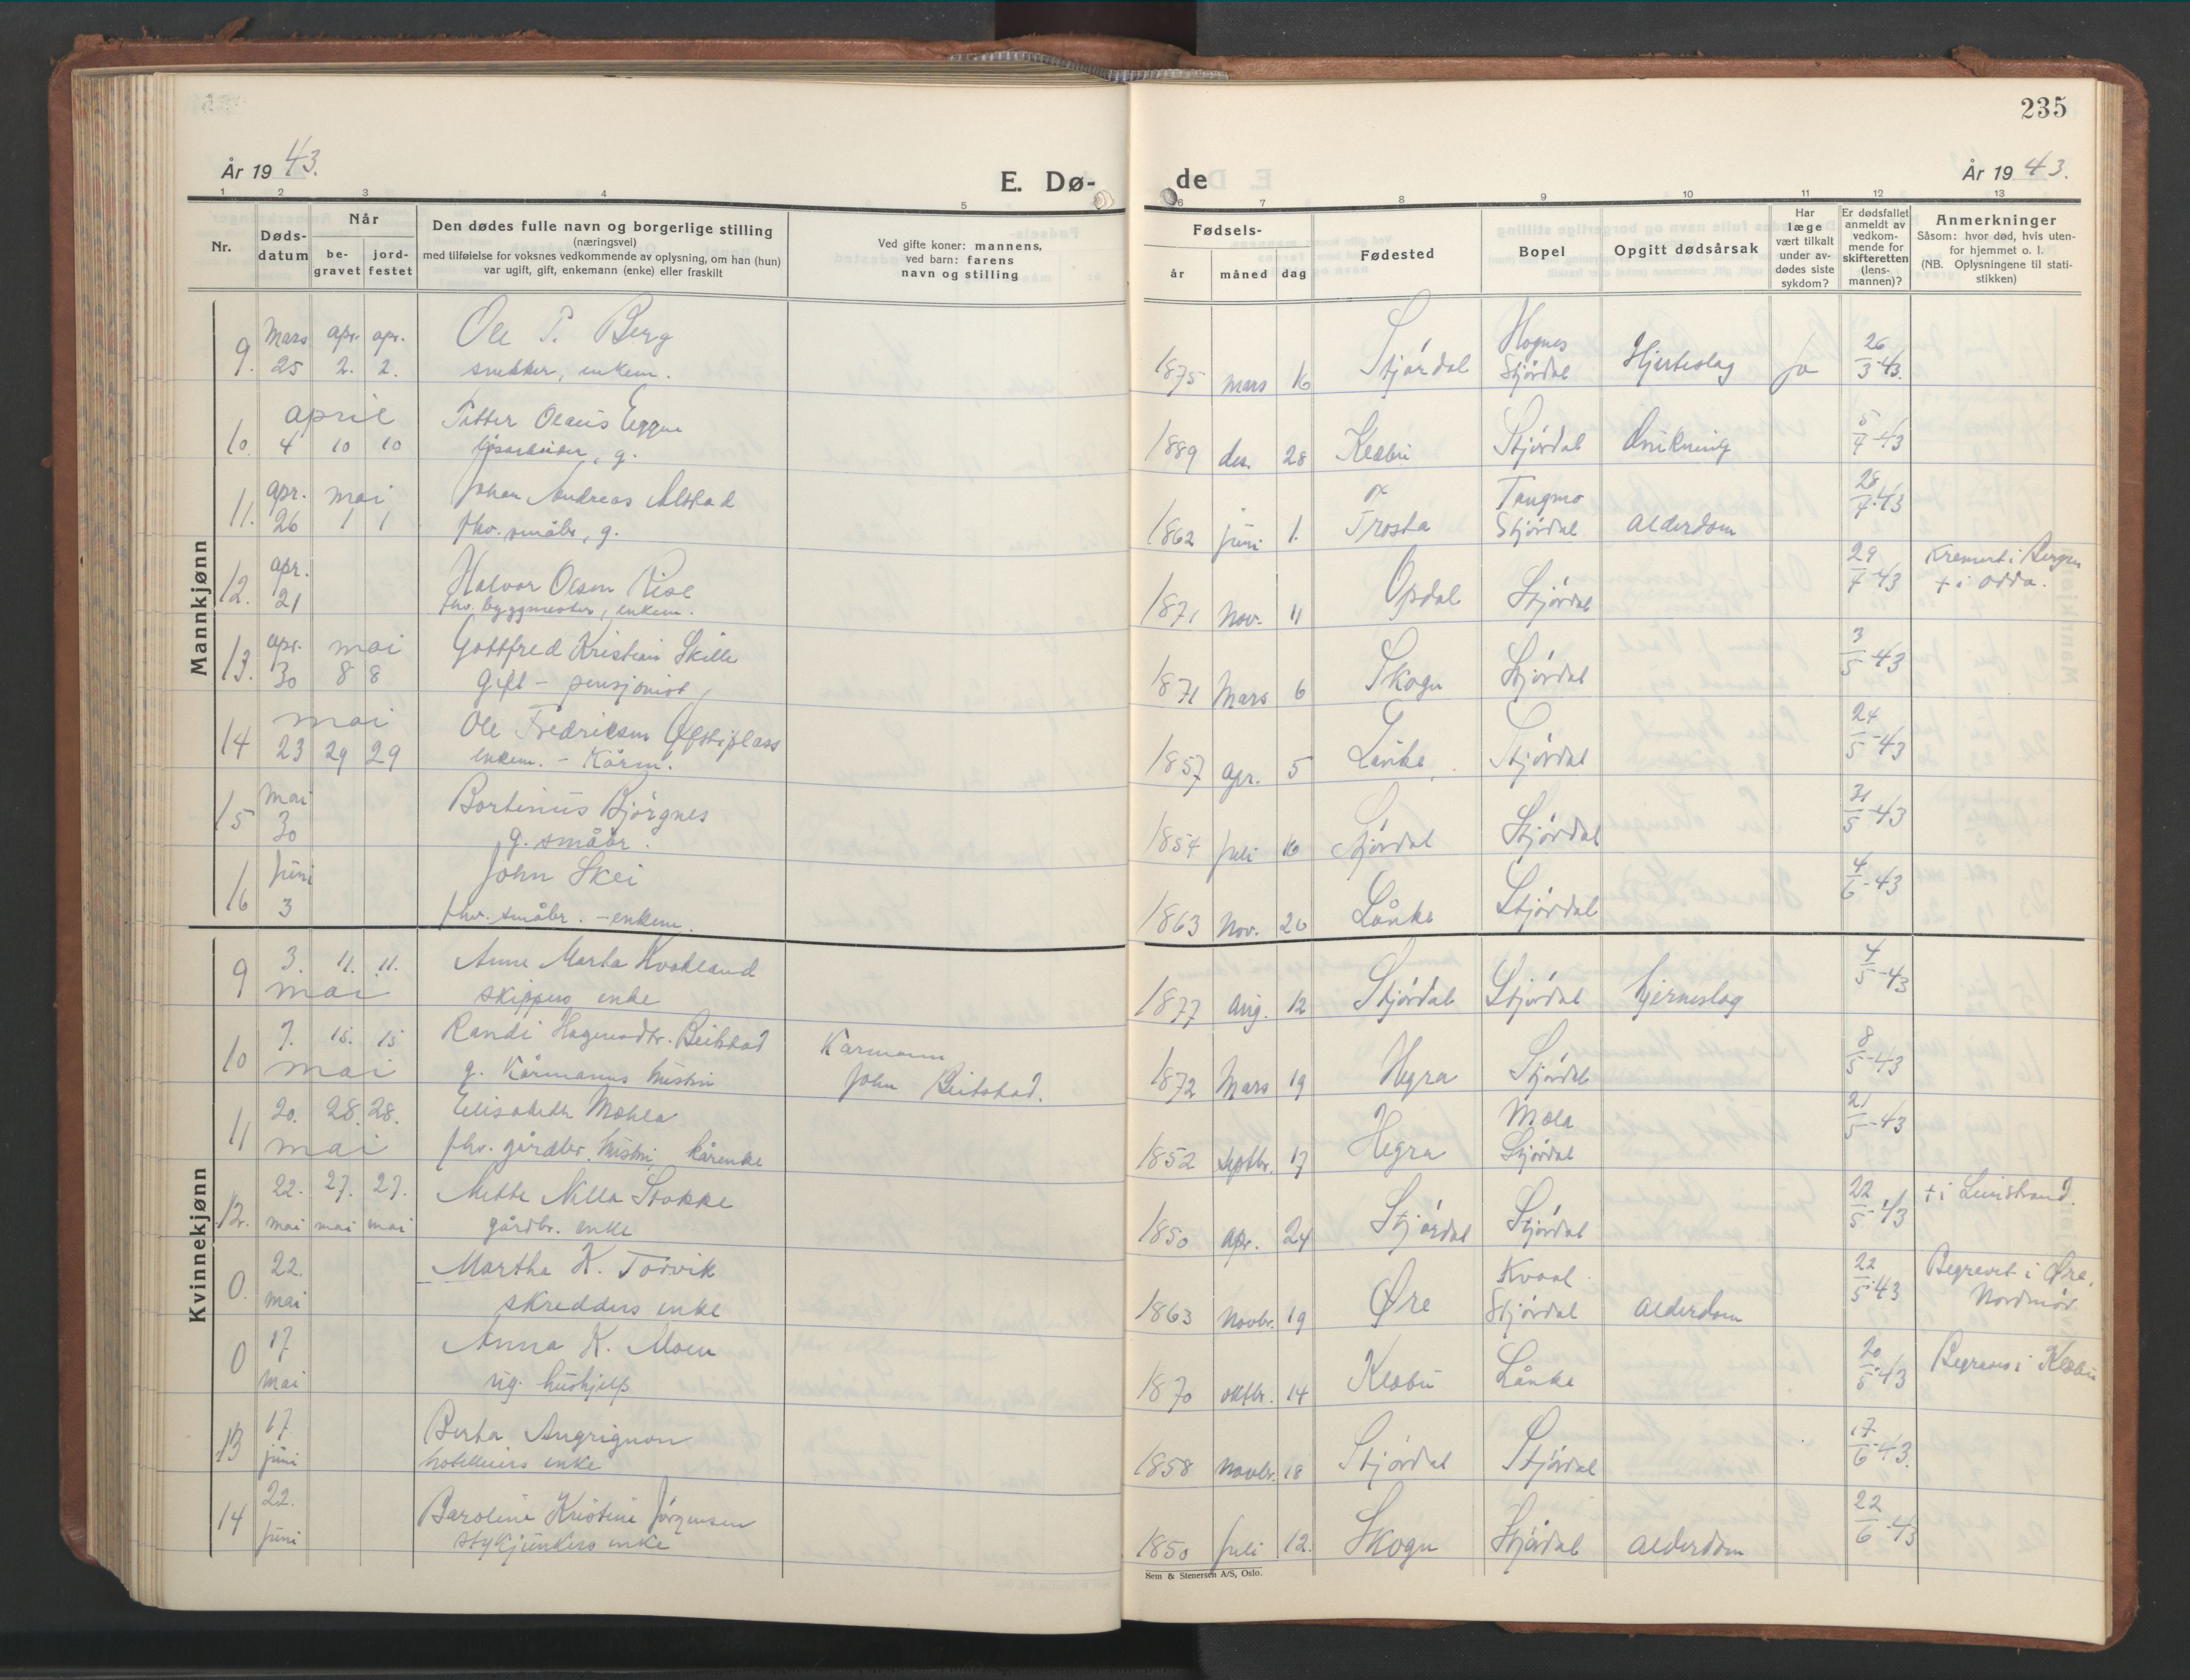 235
År 1943.
E. Dø-
de
År 1943.
1 2 3 4 5 6 7 8 9 10 11 12 13
Nr.
Døds-
datum
Når
be-
gravet
jord-
festet
Den dødes fulle navn og borgerlige stilling
(næringsvei)
med tilføielse for voksnes vedkommende av oplysning, om han (hun)
var ugift, gift, enkemann (enke) eller fraskilt
Ved gifte koner: mannens,
ved barn: farens
navn og stilling
Fødsels-
år måned dag
Fødested
Bopel
Opgitt dødsårsak
Har
læge
vært tilkalt
under av-
dødes siste
sykdom?
Er dødsfallet
anmeldt av
vedkom-
mende for
skifteretten
(lens-
mannen)?
Anmerkninger
Såsom: hvor død, hvis uten-
for hjemmet o. l.
(NB. Oplysningene til stati-
stikken)
Mannkjønn
9. Mars 25 apr. 2. apr. 2. Ole P. Berg
snekker, enkem.
1875 mars 16 Stjørdal Hognes Stjørdal Hjerteslag ja 26/3-43.
10. april 4 10 10 Petter Olaus Eggen
løsarbeider, g.
1889 des. 28 Klæbu Stjørdal Drukning 5/4-43
11. apr. 26 mai 1 1 Johan Andreas Alstad
fhv. småbr, g.
1862 juni 1. Frosta Tangmo Stjørdal Alderdom 28/4-43
12. apr. 21 Halvor Olsen Rise
fhv. byggmester, enkem.
1871 Nov. 11 Opdal Stjørdal 29/4-43 Kremert i Bergen
+ i Odda.
13. apr. 30 mai 8 8 Gottfred Kristian Skille
Gift - pensjonist
1871 Mars 6 Skogn Stjørdal 3/5-43
14 mai 23 29 29 Ole Fredriksen Øfstiplass
enkem. - Kårm.
1857 apr. 5 Lånke Stjørdal 24/5-43
15 mai 30 Bortinus Bjørgnes
g. småbr.
1854 juli 16 Stjørdal Stjørdal 31/5-43
16 Juni 3 John Skei
fhv. småbr. - enkem.
1863 Nov. 20 Lånke Stjørdal 4/6-43
Kvinnekjønn
9 3. 11. 11. mai Anne Marta Kvokland
skippers enke
1877 aug. 12 Stjørdal Stjørdal hjerneslag 4/5-43
10 7. 15. 15 mai Randi Beitstad
g. Kårmanns hustru
Kårmann
John Beitstad.
1872 Mars 19 Hegra Stjørdal 8/5-43
11 20. 28. 28. mai Elisabeth Mæhla
fhv. gårdbr. hustru, kårenke
1852 septbr. 17 Hegra Mæla Stjørdal 21/5-43
12. 22. mai 27. mai 27. mai Mette Nilla Stokke
gårdbr. enke
1850 apr. 24 Stjørdal Stjørdal 22/5-43
0. 22. mai Martha K. Torvik
skredders enke
1863 Novbr. 19 Øre Kvaal Stjørdal Alderdom 22/5-43 Begravet i Øre,
Nordmør
0 17 mai Anna K. Moen
ug. hushjelp
1870 oktbr. 14 Klæbu Lånke 20/5-43 Begraves i Klæbu
13 17. juni Berta Angrignon
hotelleiers enke
1858 Novbr. 18 Stjørdal Stjørdal 17/6-43.
14 22. Juni Baroline Kristine Jørgensen
stykjunkers enke
1850 Juli 12. Skogn Stjørdal Alderdom 22/6-43
Sem & Stenersen A/S, Oslo.